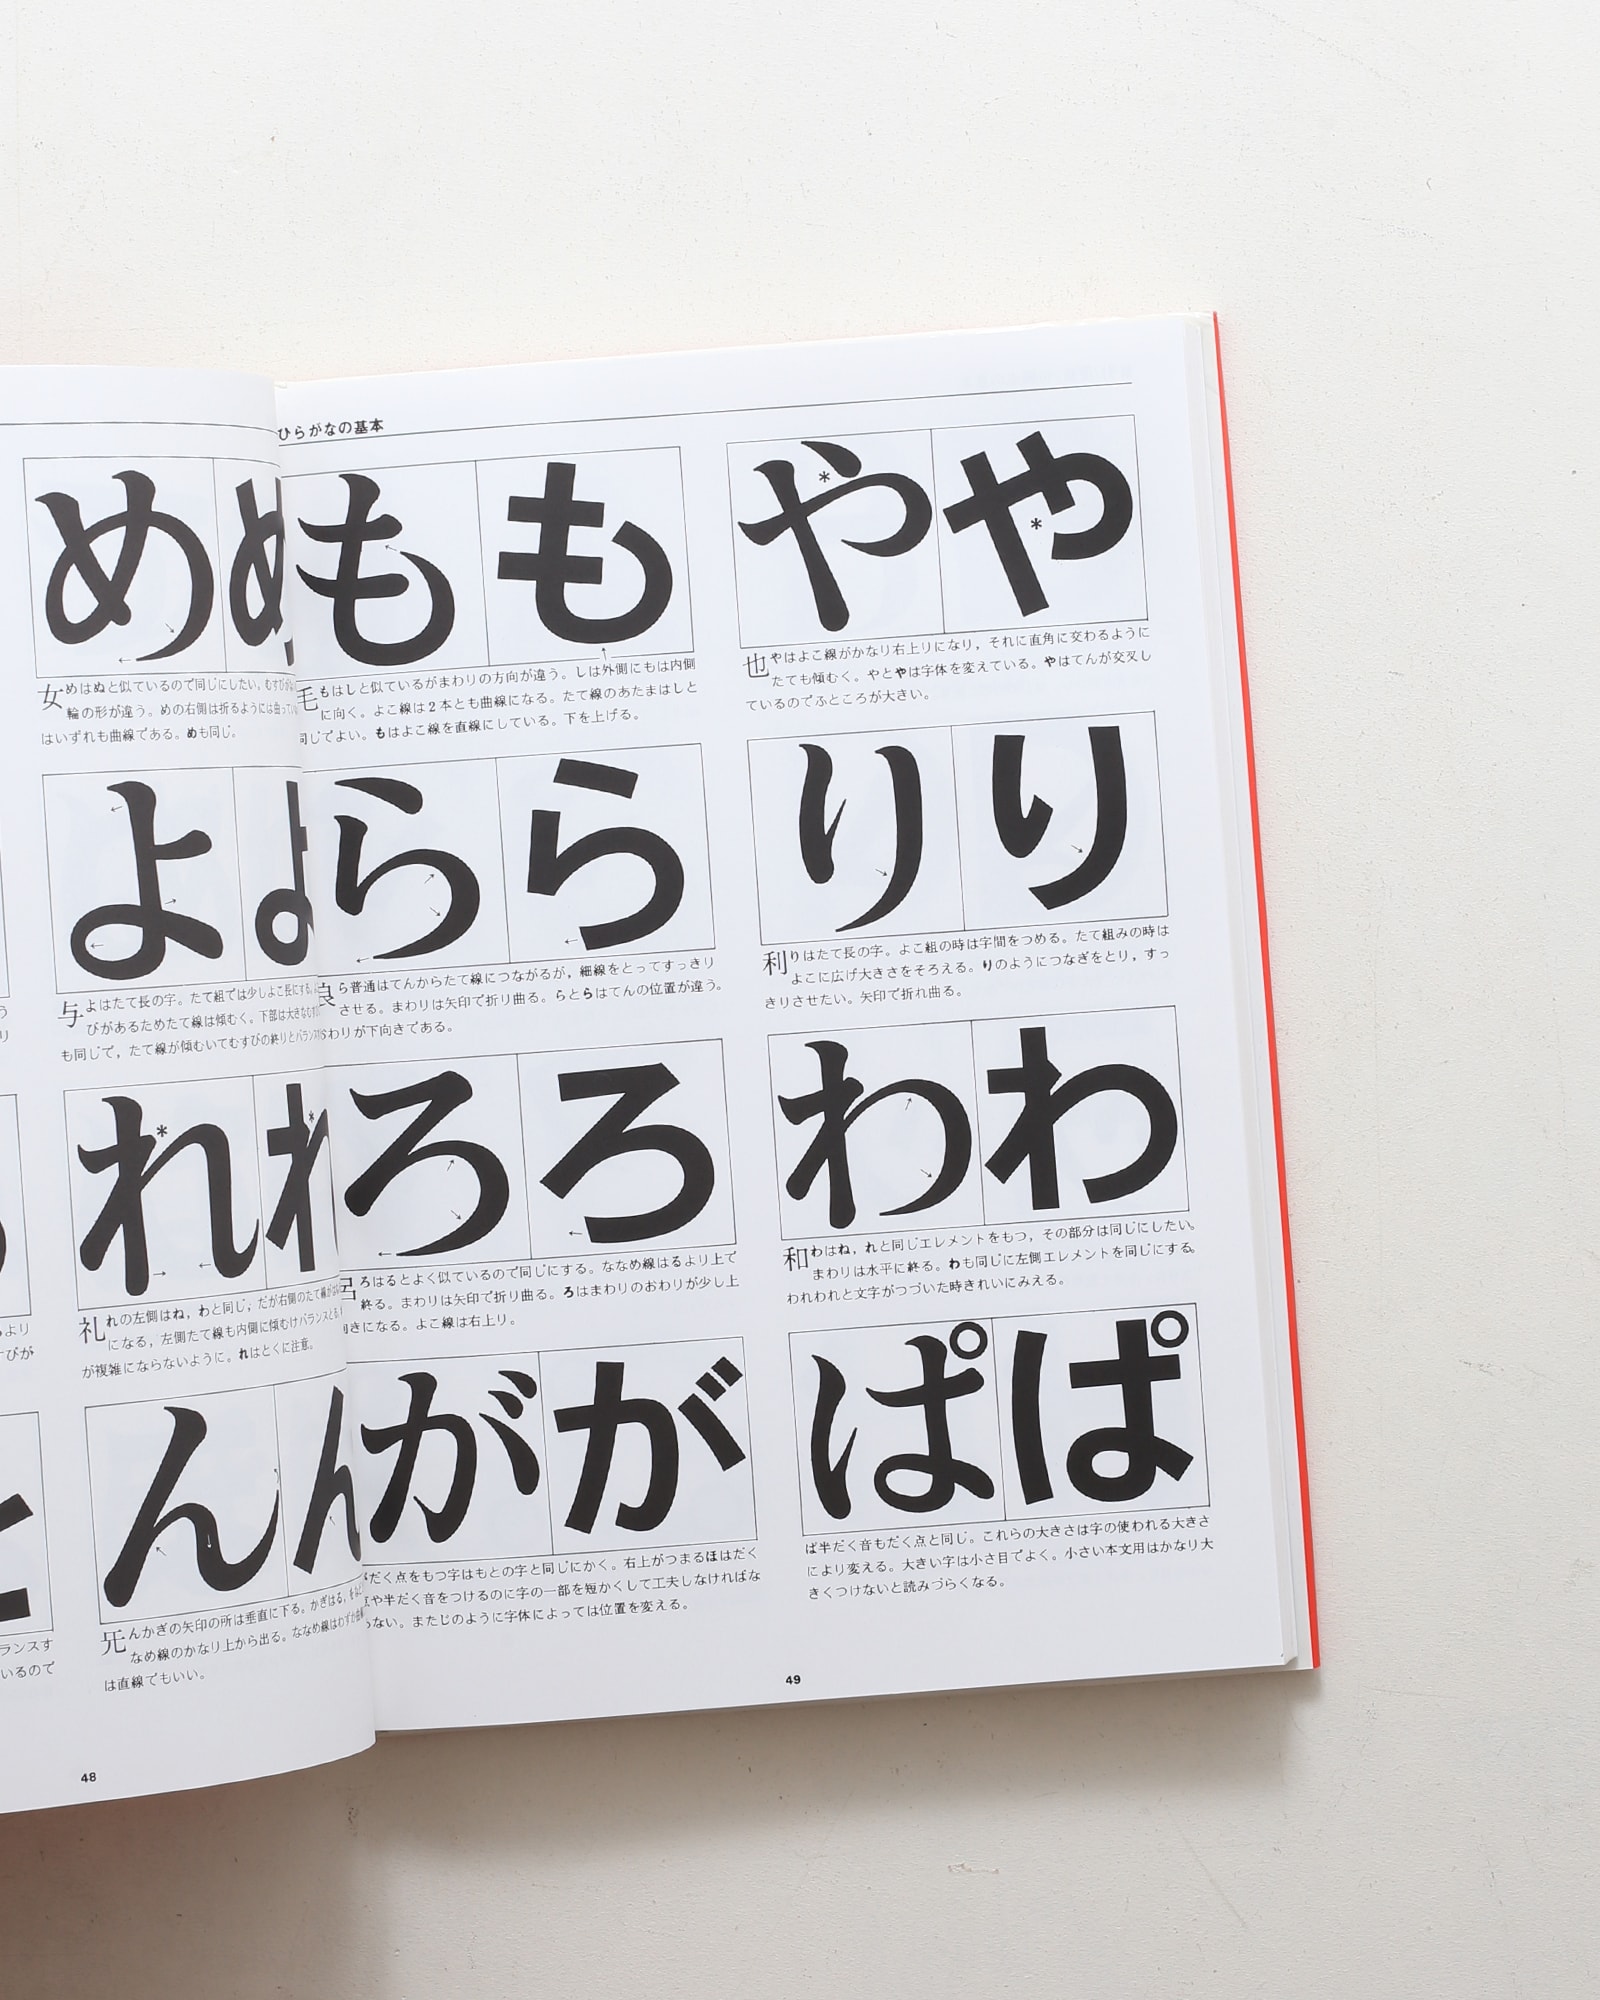 め
女めはぬと似ているので同じにしたい。むすびが
輪の形が違う。めの右側は折るようには曲って
はいずれも曲線である。めも同じ。
よ
与よはたて長の字。たて組では少しよこ長にする。
びがあるためたて線は傾むく。下部は大きなむす
も同じで，たて線が傾むいてむすびの終りとバランス
れ
礼れの左側はね，わと同じ，だが右側のたて線が
になる，左側たて線も内側に傾むけバランスとる
が複雑にならないように。れはとくに注意。
ん
旡んかぎの矢印の所は垂直に下る。かぎはる，を
なめ線のかなり上から出る。ななめ線はわずか
は直線でもいい。
より
びが
ランスす
いるので
48
ひらがなの基本
も も
毛もはしと似ているがまわりの方向が違う。しは外側にもは内側
に向く。よこ線は2本とも曲線になる。たて線のあたまはしと
同じでよい。もはよこ線を直線にしている。下を上げる。
や や
也やはよこ線がかなり右上りになり，それに直角に交わるように
たても傾むく。やとやは字体を変えている。やはてんが交叉し
ているのでふところが大きい。
ら ら
良ら普通はてんからたて線につながるが，細線をとってすっきり
させる。まわりは矢印で折り曲る。らとらはてんの位置が違う。
わりが下向きである。
り り
利りはたて長の字。よこ組の時は字間をつめる。たて組みの時は
よこに広げ大きさをそろえる。りのようにつなぎをとり，すっ
きりさせたい。矢印で折れ曲る。
ろ ろ
呂ろはるとよく似ているので同じにする。ななめ線はるより上で
終る。まわりは矢印で折り曲る。ろはまわりのおわりが少し上
向きになる。よこ線は右上り。
わ わ
和わはね，れと同じエレメントをもつ，その部分は同じにしたい。
まわりは水平に終る。わも同じに左側エレメントを同じにする。
われわれと文字がつづいた時きれいにみえる。
が が
だく点をもつ字はもとの字と同じにかく。右上がつまるほはだく
点や半だく音をつけるのに字の一部を短かくして工夫しなければな
らない。またじのように字体によっては位置を変える。
ぱ ぱ
ぱ半だく音もだく点と同じ。これらの大きさは字の使われる大きさ
により変える。大きい字は小さ目でよく。小さい本文用はかなり大
きくつけないと読みづらくなる。
49